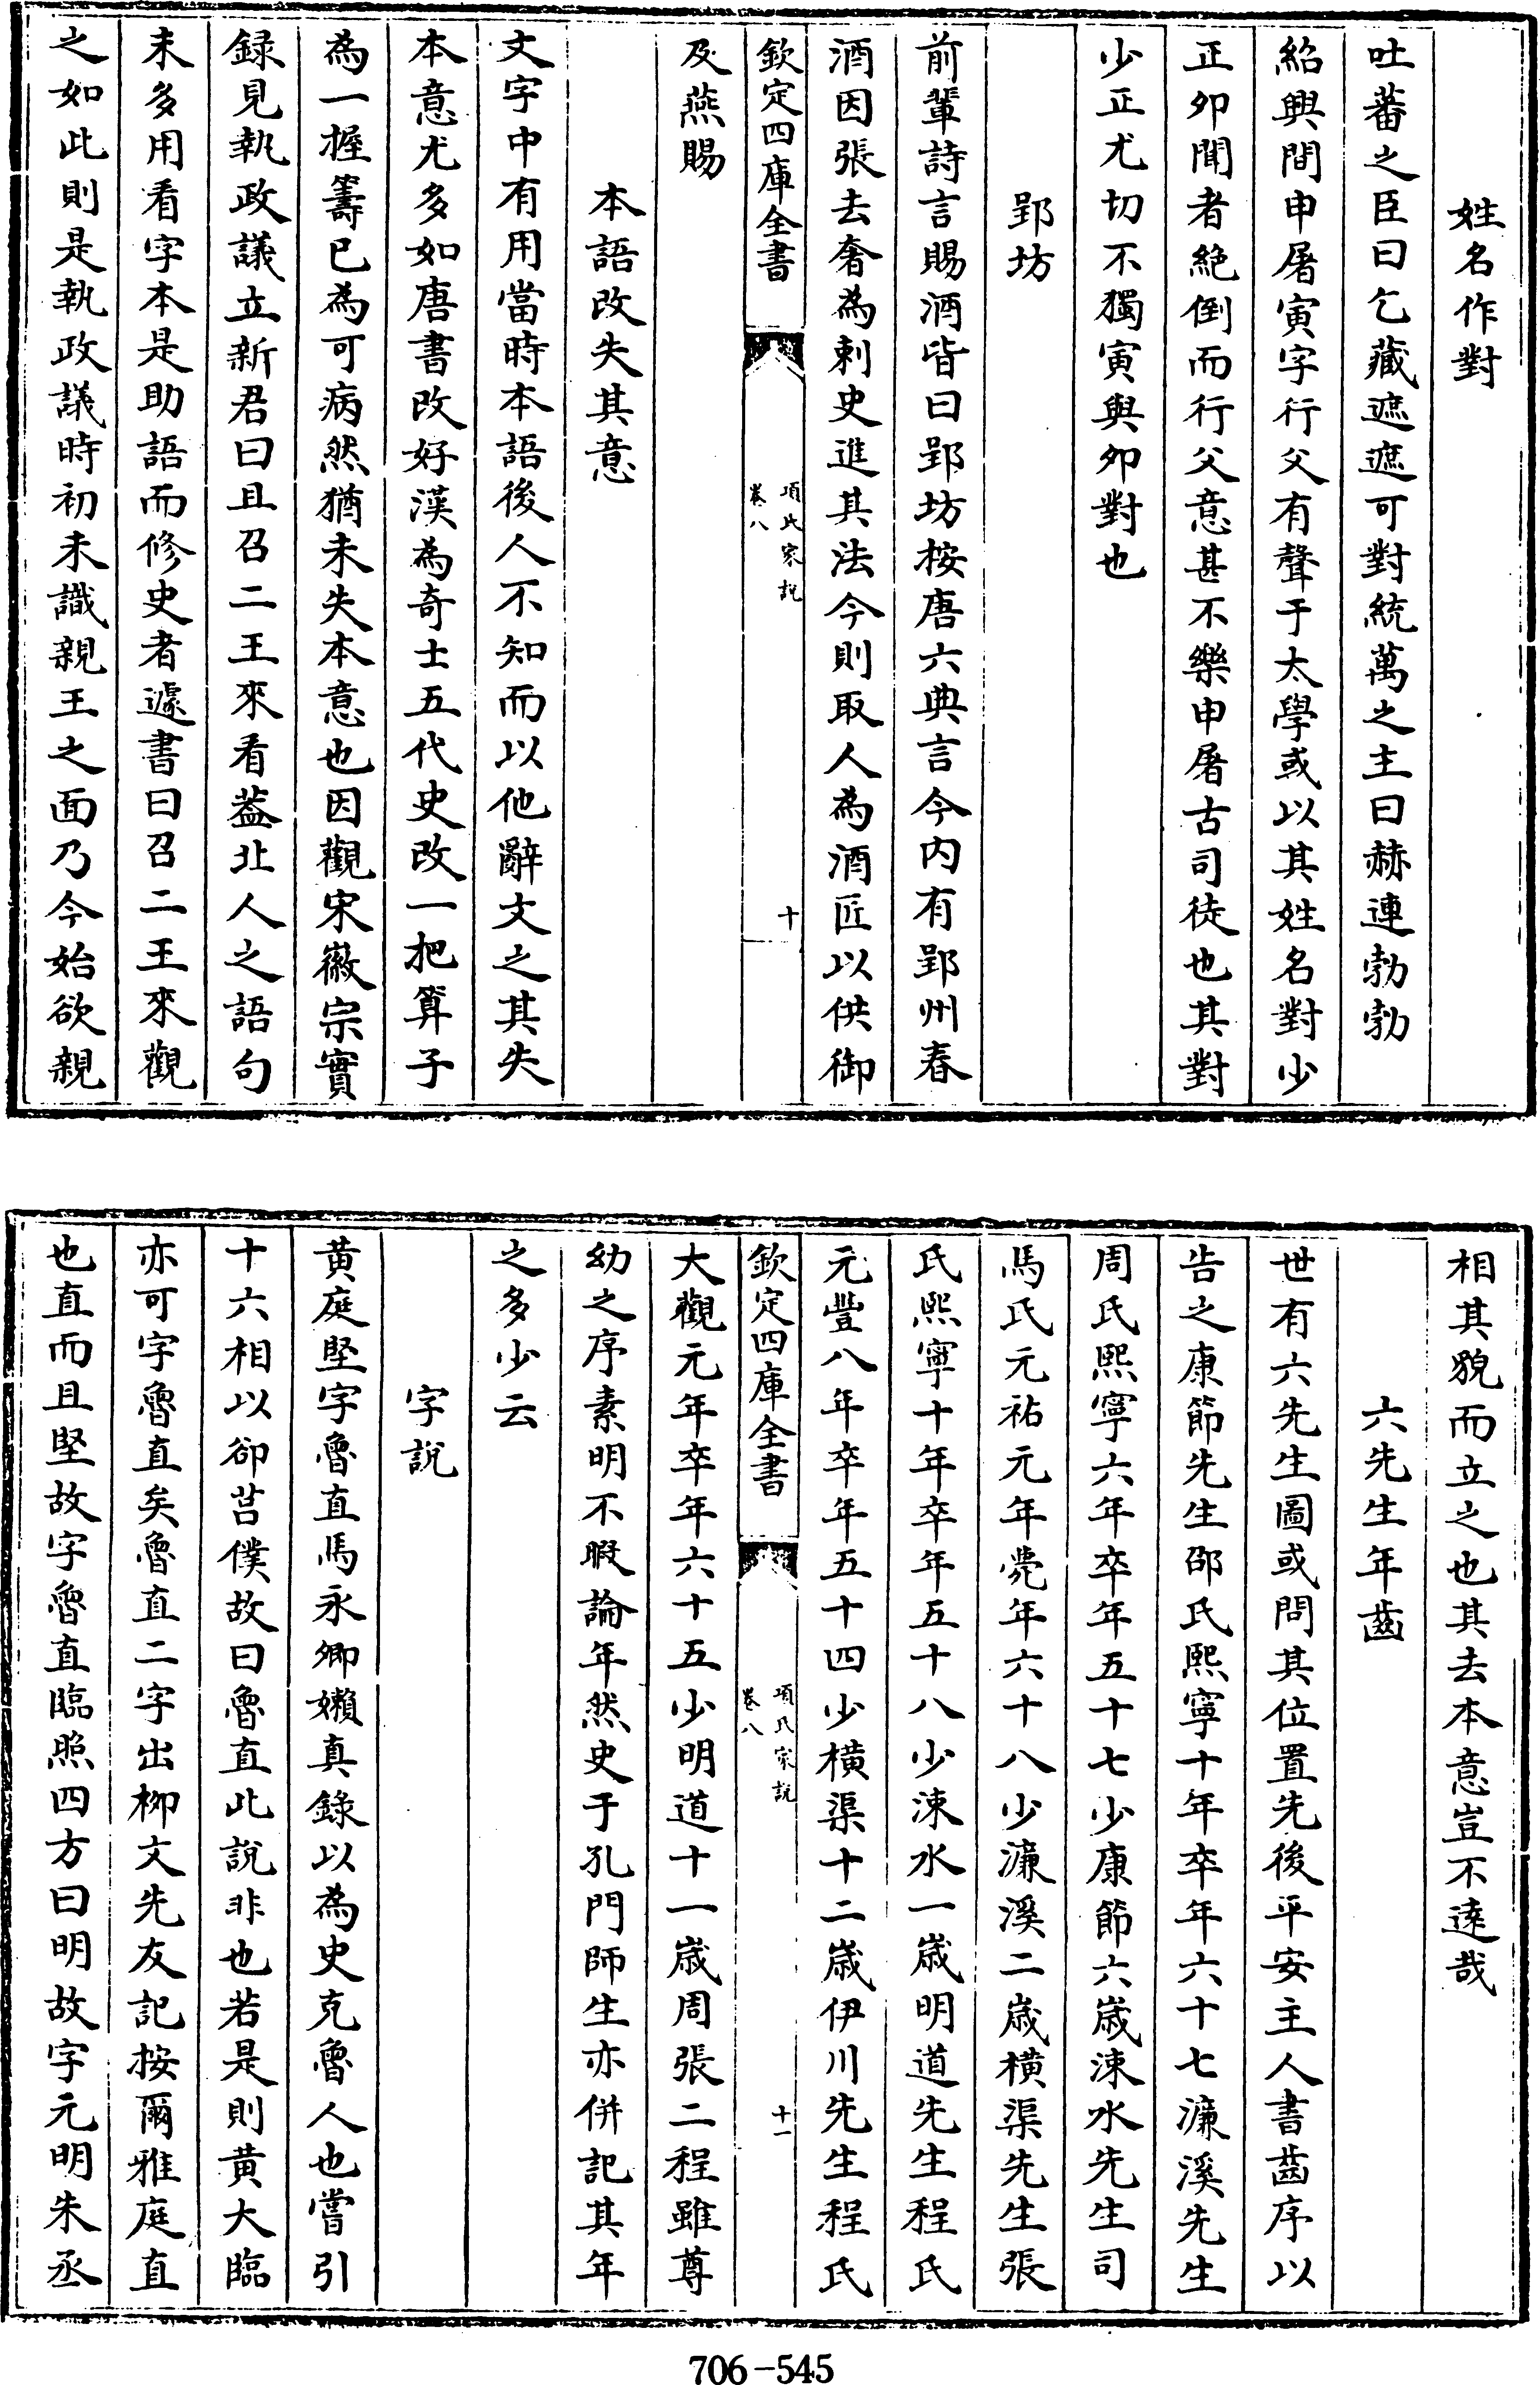 姓名作對
吐蕃之臣曰乞藏遮遮可對統萬之主曰赫連勃勃
紹興間申屠寅字行父有聲于太學或以其姓名對少
正卯聞者絶倒而行父意甚不樂申屠古司徒也其對
少正尤切不獨寅與卯對也
郢坊
前輩詩言賜酒皆曰郢坊按唐六典言今内有郢州春
酒因張去奢為刺史進其法今則取人為酒匠以供御
欽定四庫全書
項氏家說
卷八
十
及燕賜
本語改失其意
文字中有用當時本語後人不知而以他辭文之其失
本意尤多如唐書改好漢為奇士五代史改一把算子
為一握籌已為可病然猶未失本意也因觀宋徽宗實
録見執政議立新君曰且召二王來看葢北人之語句
末多用看字本是助語而修史者遽書曰召二王來觀
之如此則是執政議時初未識親王之面乃今始欲親
相其貌而立之也其去本意豈不逺哉
六先生年齒
世有六先生圖或問其位置先後平安主人書齒序以
告之康節先生邵氏熙寧十年卒年六十七濂溪先生
周氏熙寧六年卒年五十七少康節六歲涑水先生司
馬氏元祐元年薨年六十八少濂溪二歲横渠先生張
氏熙寧十年卒年五十八少涑水一歲明道先生程氏
元豐八年卒年五十四少横渠十二歲伊川先生程氏
欽定四庫全書
項氏家說
卷八
十一
大觀元年卒年六十五少明道十一歲周張二程雖尊
幼之序素明不暇論年然史于孔門師生亦併記其年
之多少云
字說
黄庭堅字魯直馬永卿嬾真錄以為史克魯人也嘗引
十六相以卻莒僕故曰魯直此說非也若是則黄大臨
亦可字魯直矣魯直二字出柳文先友記按爾雅庭直
也直而且堅故字魯直臨照四方曰明故字元明朱丞
706-545